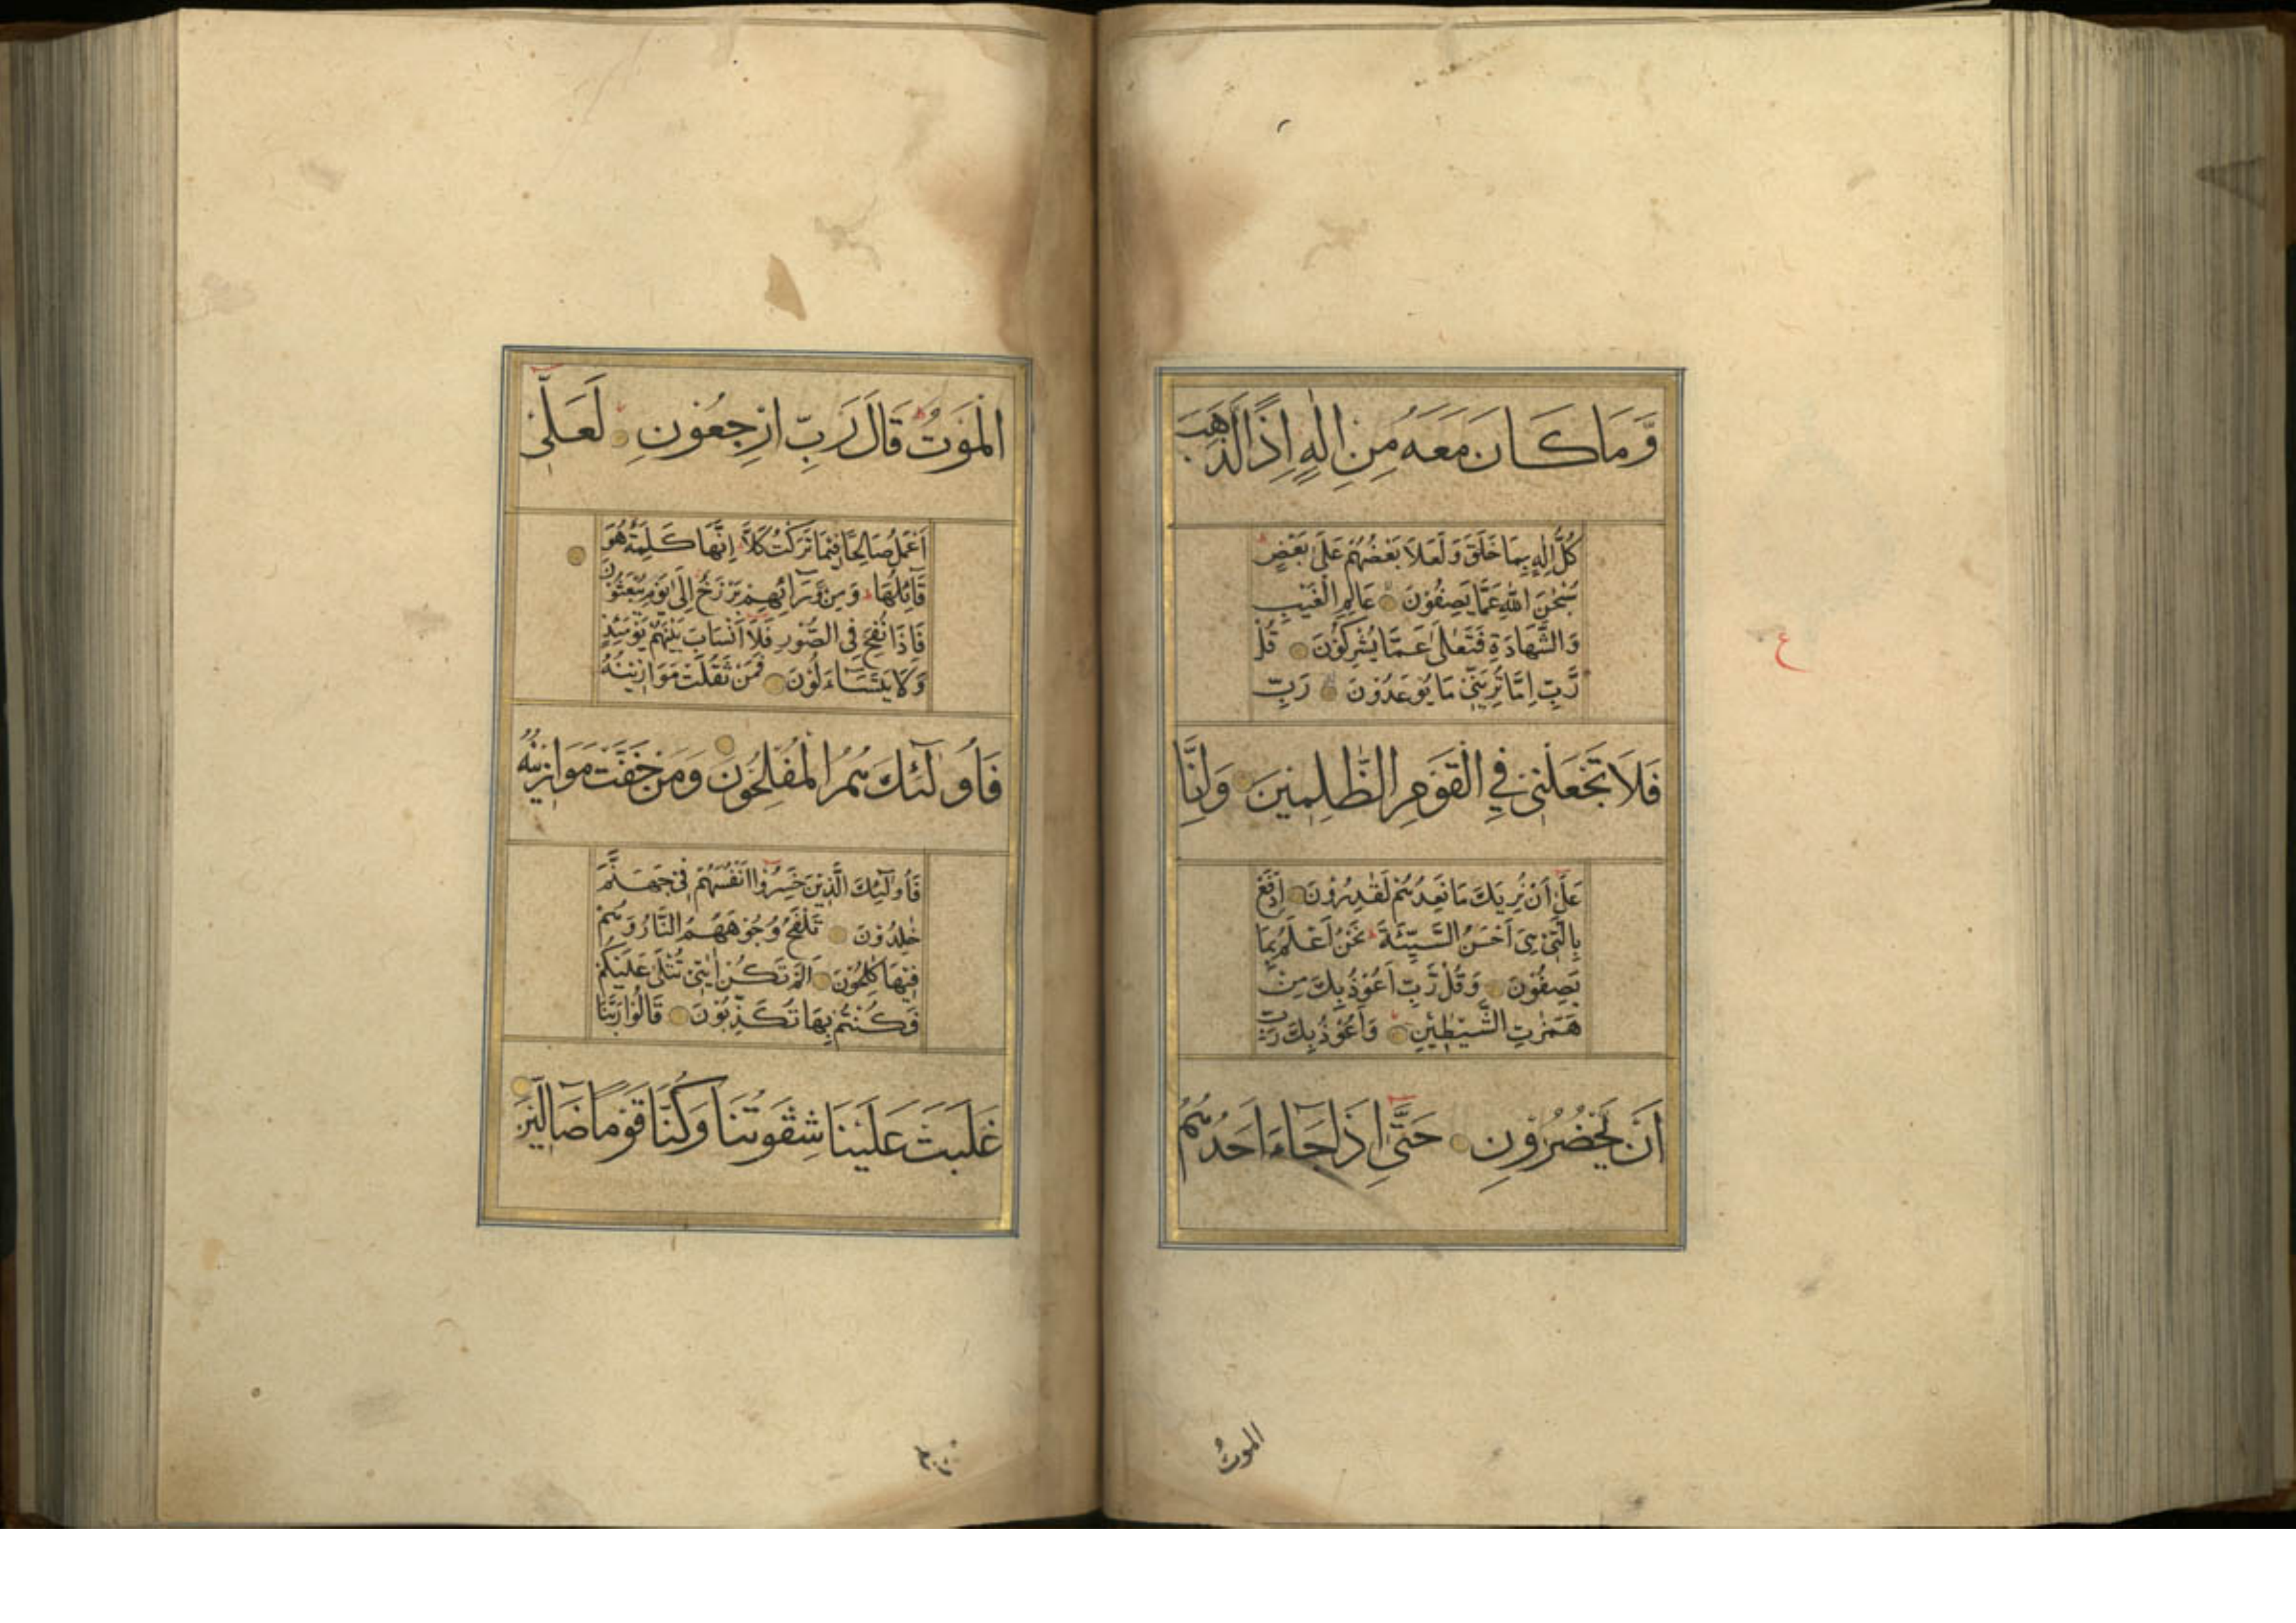 وَّمَا كَانَ مَعَهُ مِنْ اِلٰهٍ اِذًا لَّذَهَبَ
كُلُّ اِلٰهٍ بِمَا خَلَقَ وَلَعَلَا بَعْضُهُمْ عَلٰى بَعْضٍ
سُبْحٰنَ اللّٰهِ عَمَّا يَصِفُوْنَ عَالِمِ الْغَيْبِ
وَالشَّهَادَةِ فَتَعٰلٰى عَمَّا يُشْرِكُوْنَ قُلْ
رَّبِّ اِمَّا تُرِيَنِّيْ مَا يُوْعَدُوْنَ رَبِّ
فَلَا تَجْعَلْنِيْ فِي الْقَوْمِ الظّٰلِمِيْنَ وَاِنَّا
عَلٰى اَنْ نُرِيَكَ مَا نَعِدُهُمْ لَقٰدِرُوْنَ اِدْفَعْ
بِالَّتِيْ هِيَ اَحْسَنُ السَّيِّئَةَ نَحْنُ اَعْلَمُ بِمَا
يَصِفُوْنَ وَقُلْ رَّبِّ اَعُوْذُ بِكَ مِنْ
هَمَزٰتِ الشَّيٰطِيْنِ وَاَعُوْذُ بِكَ رَبِّ
اَنْ يَّحْضُرُوْنِ حَتّٰى اِذَا جَاۤءَ اَحَدَهُمُ
ع
الموتُ
الْمَوْتُ قَالَ رَبِّ ارْجِعُوْنِ لَعَلِّيْ
اَعْمَلُ صَالِحًا فِيْمَا تَرَكْتُ كَلَّا اِنَّهَا كَلِمَةٌ هُوَ
قَاۤئِلُهَا وَمِنْ وَّرَاۤئِهِمْ بَرْزَخٌ اِلٰى يَوْمِ يُبْعَثُوْنَ
فَاِذَا نُفِخَ فِي الصُّوْرِ فَلَاۤ اَنْسَابَ بَيْنَهُمْ يَوْمَئِذٍ
وَّلَا يَتَسَاۤءَلُوْنَ فَمَنْ ثَقُلَتْ مَوَازِيْنُهٗ
فَاُولٰۤئِكَ هُمُ الْمُفْلِحُوْنَ وَمَنْ خَفَّتْ مَوَازِيْنُهٗ
فَاُولٰۤئِكَ الَّذِيْنَ خَسِرُوْا اَنْفُسَهُمْ فِيْ جَهَنَّمَ
خٰلِدُوْنَ تَلْفَحُ وُجُوْهَهُمُ النَّارُ وَهُمْ
فِيْهَا كٰلِحُوْنَ اَلَمْ تَكُنْ اٰيٰتِيْ تُتْلٰى عَلَيْكُمْ
فَكُنْتُمْ بِهَا تُكَذِّبُوْنَ قَالُوْا رَبَّنَا
غَلَبَتْ عَلَيْنَا شِقْوَتُنَا وَكُنَّا قَوْمًا ضَاۤلِّيْنَ